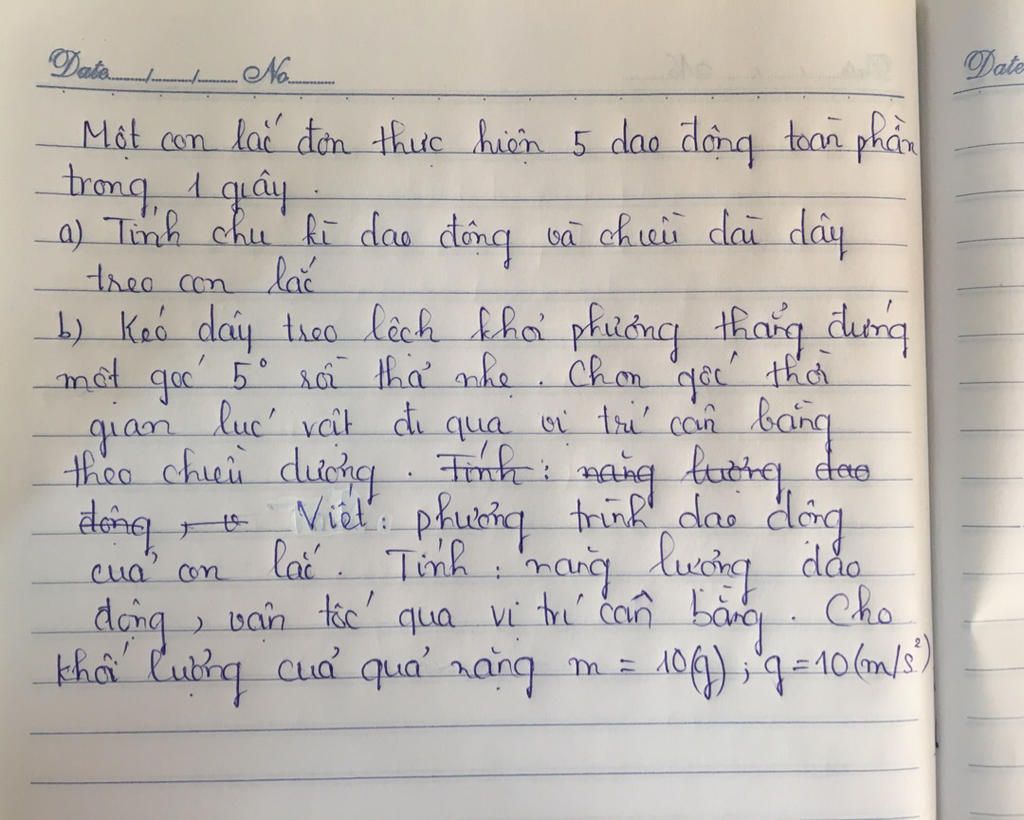 Date..../..../.... No........
Date
Một con lắc đơn thực hiện 5 dao động toàn phần
trong 1 giây.
a) Tính chu kì dao động và chiều dài dây
treo con lắc
b) Kéo dây treo lệch khỏi phương thẳng đứng
một góc 5° rồi thả nhẹ. Chọn gốc thời
gian lúc vật đi qua vị trí cân bằng
theo chiều dương. Tính: năng lượng dao
động, v Viết: phương trình dao động
của con lắc. Tính: năng lượng dao
động, vận tốc qua vị trí cân bằng. Cho
khối lượng của quả nặng m = 10(g); g = 10(m/s²)